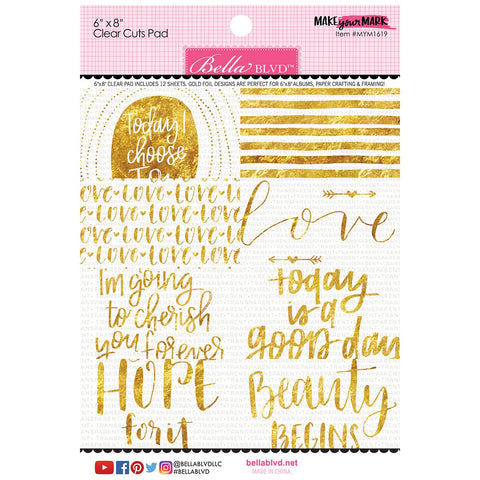 6" x 8"
Clear Cuts Pad
MAKE your MARK
Item #MYM1619
Bella BLVD™
6"x8" CLEAR PAD INCLUDES 12 SHEETS. GOLD FOIL DESIGNS ARE PERFECT FOR 6"x8" ALBUMS, PAPER CRAFTING & FRAMING!
Today I
choose
Joy
LOVE·LOVE·LOVE·LO
LOVE·LOVE·LOVE·L
LOVE·LOVE·LOVE·LO
LOVE·LOVE·LOVE·L
love
I'm going
to cherish
you forever
today
is a
good day
HOPE
for it
Beauty
BEGINS
@BELLABLVDLLC
#BELLABLVD
bellablvd.net
MADE IN CHINA.